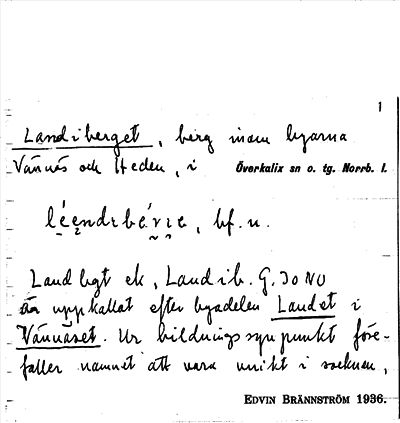 1
Landiberget, berg inom byarna
Vännäs och Heden, i Överkalix sn o. tg. Norrb. l.
bf. u.
Landbgt ek, Landib. G. 30 NV
är uppkallat efter byadelen Landet i
Vännäset. Ur bildningssynpunkt före-
faller namnet att vara unikt i socknen,
EDVIN BRÄNNSTRÖM 1936.